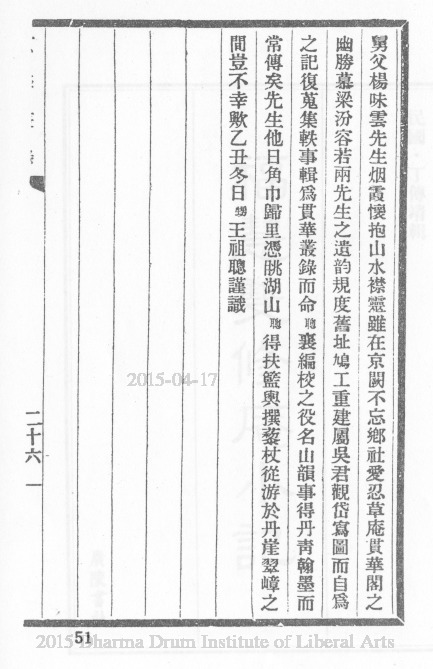 舅父楊味雲先生烟霞懷抱山水襟靈雖在京闕不忘鄉社愛忍草庵貫華閣之
幽勝慕梁汾容若兩先生之遺韵規度舊址鳩工重建屬吳君觀岱寫圖而自爲
之記復蒐集軼事輯爲貫華叢錄而命聰襄編校之役名山韻事得丹靑翰墨而
常傳矣先生他日角巾歸里憑眺湖山聰得扶籃輿撰藜杖從游於丹崖翠嶂之
間豈不幸歟乙丑冬日甥王祖聰謹識
二十六
51
2015-04-17
2015 Dharma Drum Institute of Liberal Arts